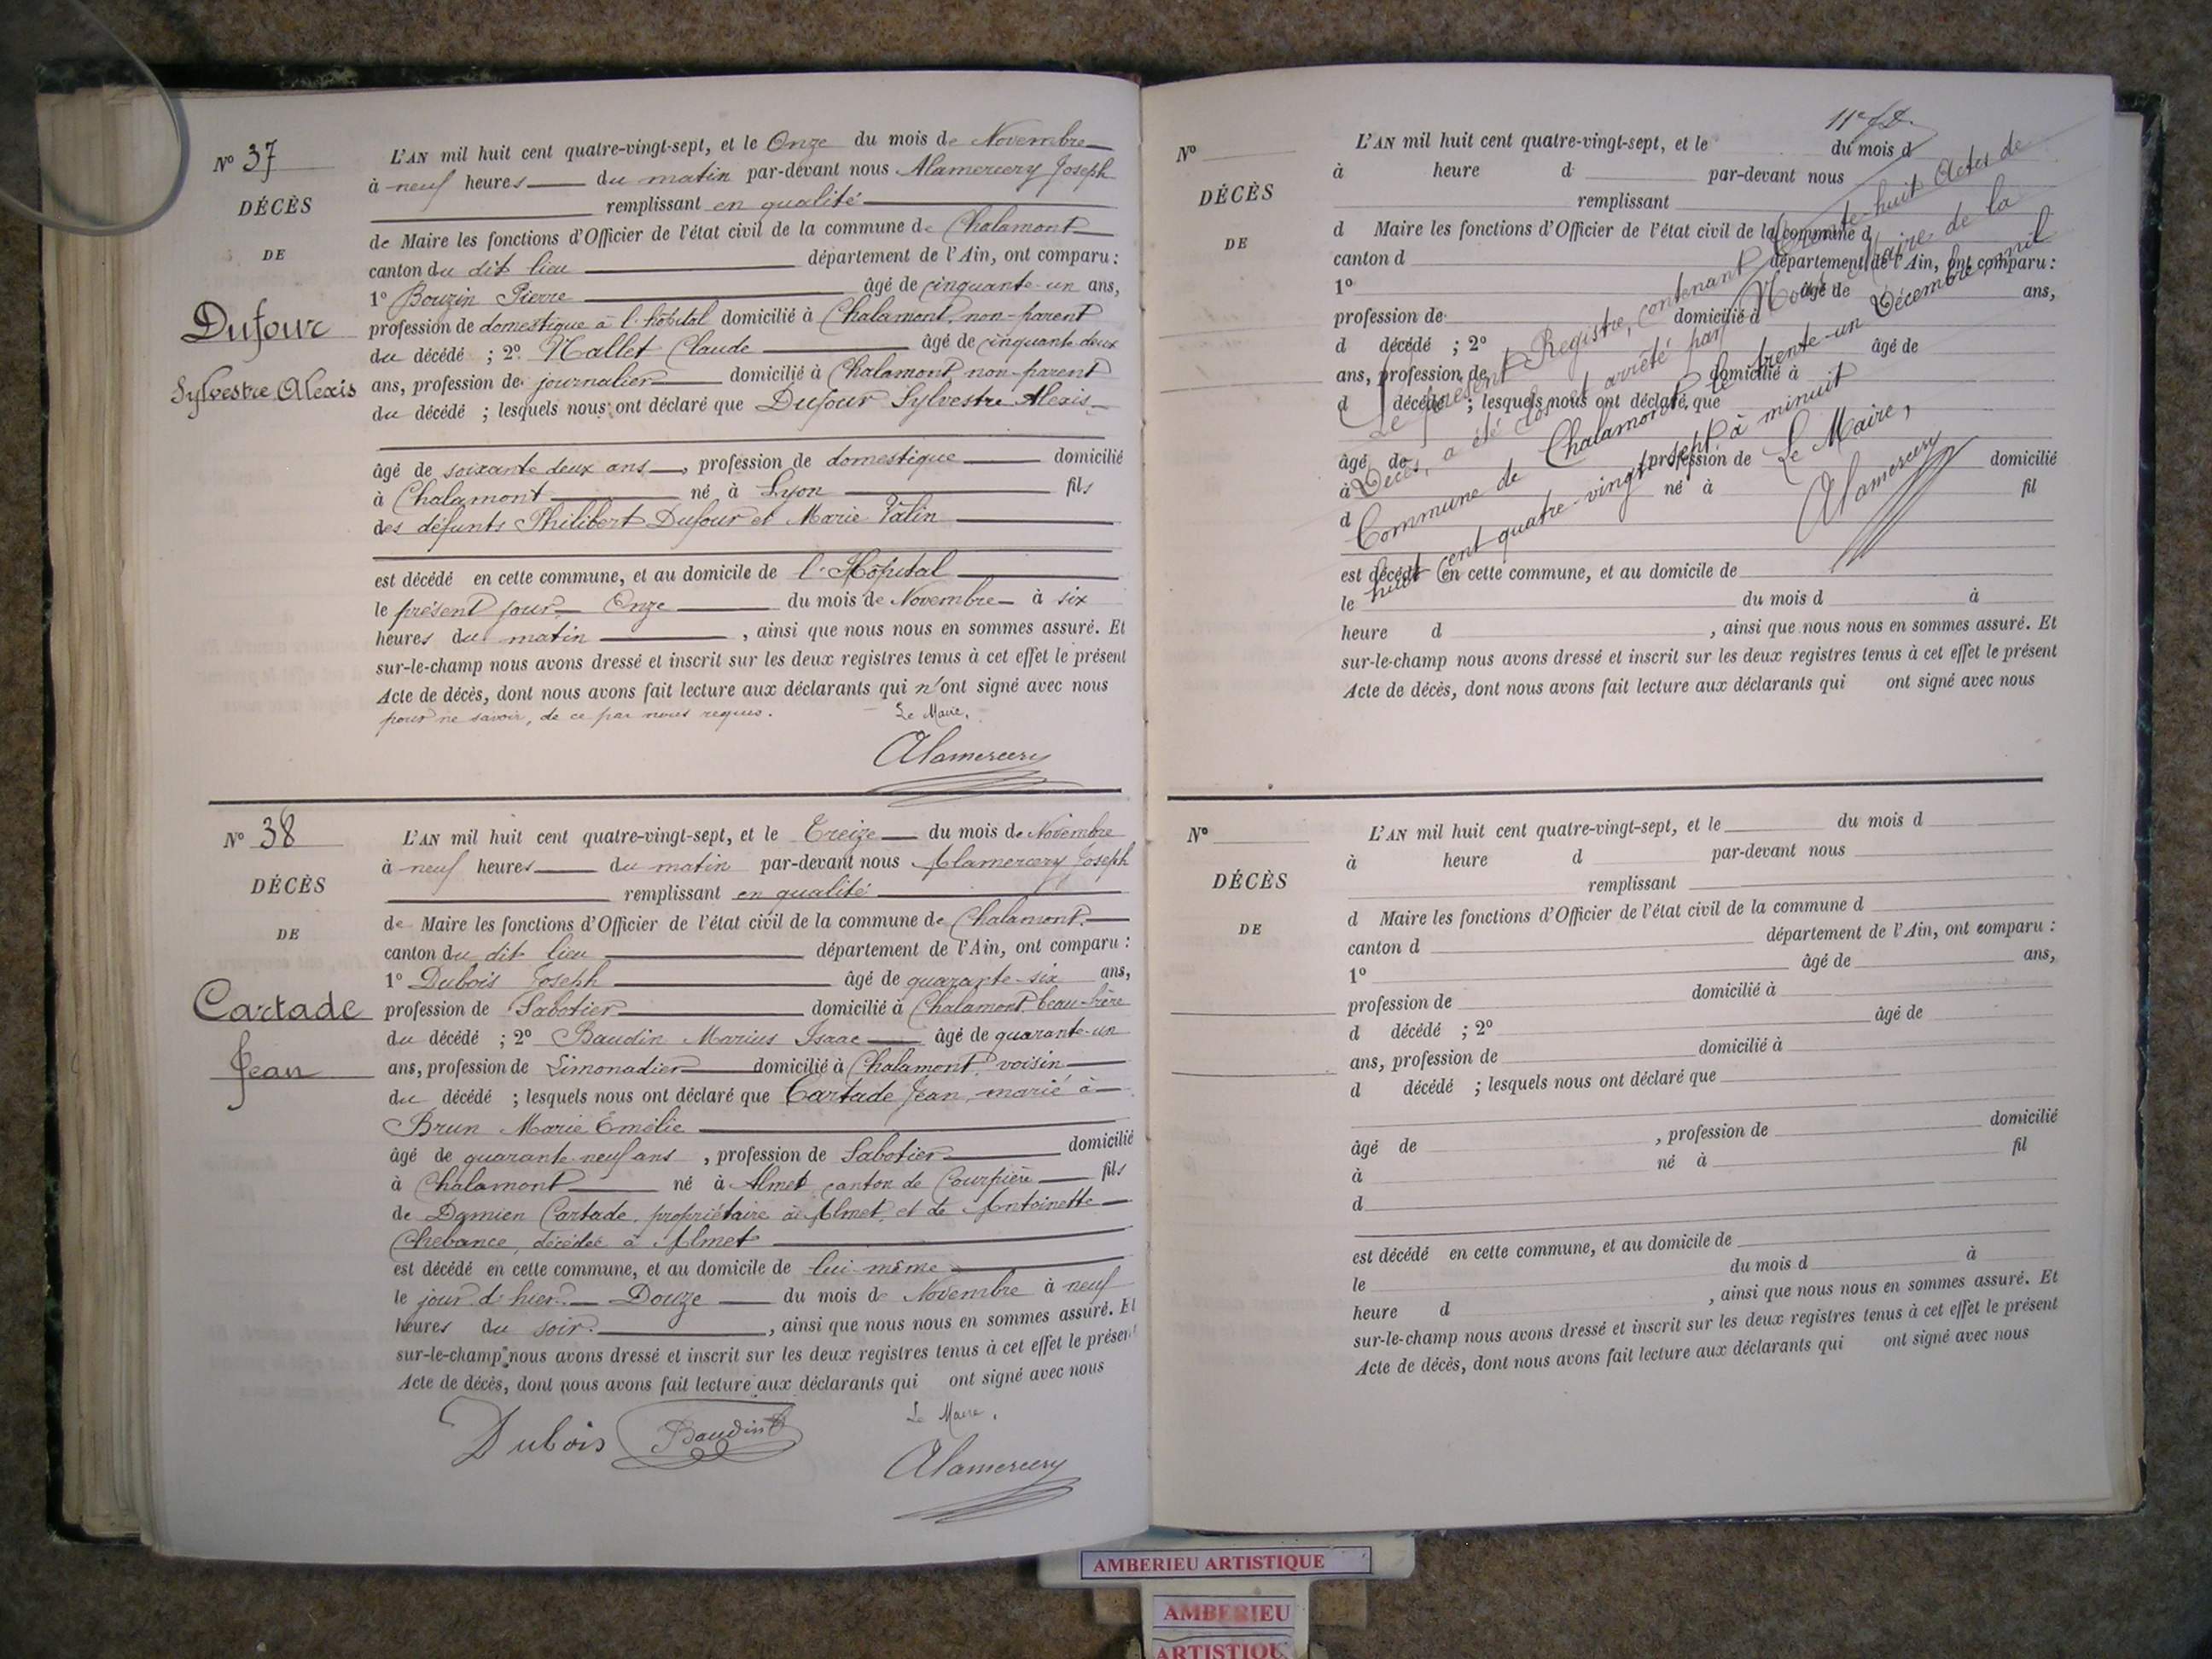 N° 37
DÉCÈS
DE
Dufour
Sylvestre Alexis
L'AN mil huit cent quatre-vingt-sept, et le Onze du mois de Novembre
à neuf heures du matin par-devant nous Alamercery Joseph
remplissant en qualité
de Maire les fonctions d'Officier de l'état civil de la commune de Chalamont
canton du dit lieu département de l'Ain, ont comparu :
1° Bouzin Pierre âgé de cinquante-un ans,
profession de domestique à l'hôpital domicilié à Chalamont, non-parent
du décédé ; 2° Nallet Claude âgé de cinquante deux
ans, profession de journalier domicilié à Chalamont, non-parent
du décédé ; lesquels nous ont déclaré que Dufour Sylvestre Alexis
âgé de soixante deux ans, profession de domestique domicilié
à Chalamont né à Lyon fils
des défunts Philibert Dufour et Marie Valin
est décédé en cette commune, et au domicile de l'Hôpital
le présent jour Onze du mois de Novembre à six
heures du matin, ainsi que nous nous en sommes assuré. Et
sur-le-champ nous avons dressé et inscrit sur les deux registres tenus à cet effet le présent
Acte de décès, dont nous avons fait lecture aux déclarants qui n'ont signé avec nous
pour ne savoir, de ce par nous requis. Le Maire,
Alamercery
N° 38
DÉCÈS
DE
Cartade
Jean
L'AN mil huit cent quatre-vingt-sept, et le Treize du mois de Novembre
à neuf heures du matin par-devant nous Alamercery Joseph
remplissant en qualité
de Maire les fonctions d'Officier de l'état civil de la commune de Chalamont
canton du dit lieu département de l'Ain, ont comparu :
1° Dubois Joseph âgé de quarante-six ans,
profession de Sabotier domicilié à Chalamont, beau-frère
du décédé ; 2° Baudin Marius Isaac âgé de quarante-un
ans, profession de Limonadier domicilié à Chalamont, voisin
du décédé ; lesquels nous ont déclaré que Cartade Jean, marié à
Brun Marie Emélie
âgé de quarante-neuf ans, profession de Sabotier domicilié
à Chalamont né à Almet canton de Courpière fils
de Damien Cartade, propriétaire à Almet, et de Antoinette
Chebance, décédée à Almet
est décédé en cette commune, et au domicile de lui-même
le jour d'hier Douze du mois de Novembre à neuf
heures du soir, ainsi que nous nous en sommes assuré. Et
sur-le-champ nous avons dressé et inscrit sur les deux registres tenus à cet effet le présent
Acte de décès, dont nous avons fait lecture aux déclarants qui ont signé avec nous
Dubois Baudin Le Maire,
Alamercery
N°
DÉCÈS
DE
L'AN mil huit cent quatre-vingt-sept, et le du mois d
à heure d par-devant nous
remplissant
d Maire les fonctions d'Officier de l'état civil de la commune d
canton d département de l'Ain, ont comparu :
1° âgé de ans,
profession de domicilié à
d décédé ; 2° âgé de
ans, profession de domicilié à
d décédé ; lesquels nous ont déclaré que
âgé de , profession de domicilié
à né à fil
d
est décédé en cette commune, et au domicile de
le du mois d à
heure d , ainsi que nous nous en sommes assuré. Et
sur-le-champ nous avons dressé et inscrit sur les deux registres tenus à cet effet le présent
Acte de décès, dont nous avons fait lecture aux déclarants qui ont signé avec nous
Le présent Registre, contenant trente-huit Actes de
Décès, a été clos et arrêté par Nous Maire de la
Commune de Chalamont, le trente-un Décembre mil
huit cent quatre-vingt-sept, à minuit
Le Maire,
Alamercery
N°
DÉCÈS
DE
L'AN mil huit cent quatre-vingt-sept, et le du mois d
à heure d par-devant nous
remplissant
d Maire les fonctions d'Officier de l'état civil de la commune d
canton d département de l'Ain, ont comparu :
1° âgé de ans,
profession de domicilié à
d décédé ; 2° âgé de
ans, profession de domicilié à
d décédé ; lesquels nous ont déclaré que
âgé de , profession de domicilié
à né à fil
d
est décédé en cette commune, et au domicile de
le du mois d à
heure d , ainsi que nous nous en sommes assuré. Et
sur-le-champ nous avons dressé et inscrit sur les deux registres tenus à cet effet le présent
Acte de décès, dont nous avons fait lecture aux déclarants qui ont signé avec nous
AMBERIEU ARTISTIQUE
AMBERIEU
ARTISTIQU